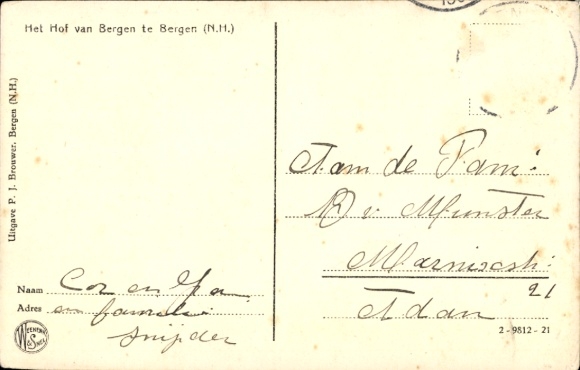 Het Hof van Bergen te Bergen (N.H.)
Uitgave P. J. Brouwer, Bergen (N.H.)
Aan de Fam:
v. Munster
Marnixstr:
21
Adam
Naam Cor en
Adres en familie
Snijder
WEENENK & SNEL
2 - 9812 - 21